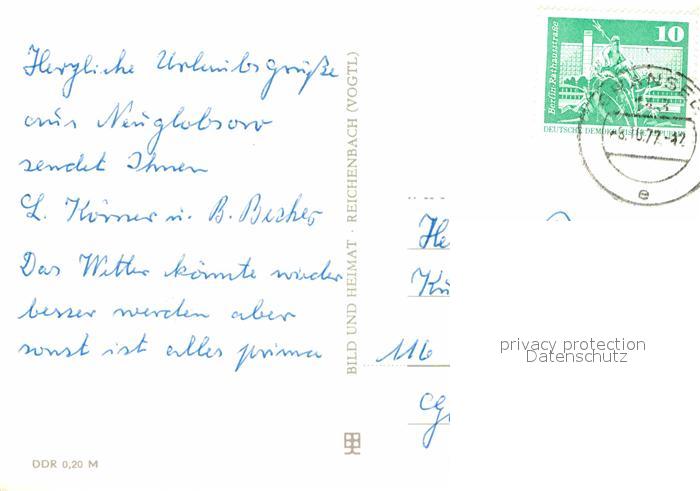 Herzliche Urlaubsgrüße
aus Neuglobsow
sendet Ihnen
L. Körner u. B. Becher
Das Wetter könnte wieder
besser werden aber
sonst ist alles prima
BILD UND HEIMAT · REICHENBACH (VOGTL)
DDR 0,20 M
10
Berlin-Rathausstraße
DEUTSCHE DEMOKRATISCHE REPUBLIK
-8.10.77.-12
e
He
Kü
116
privacy protection
Datenschutz